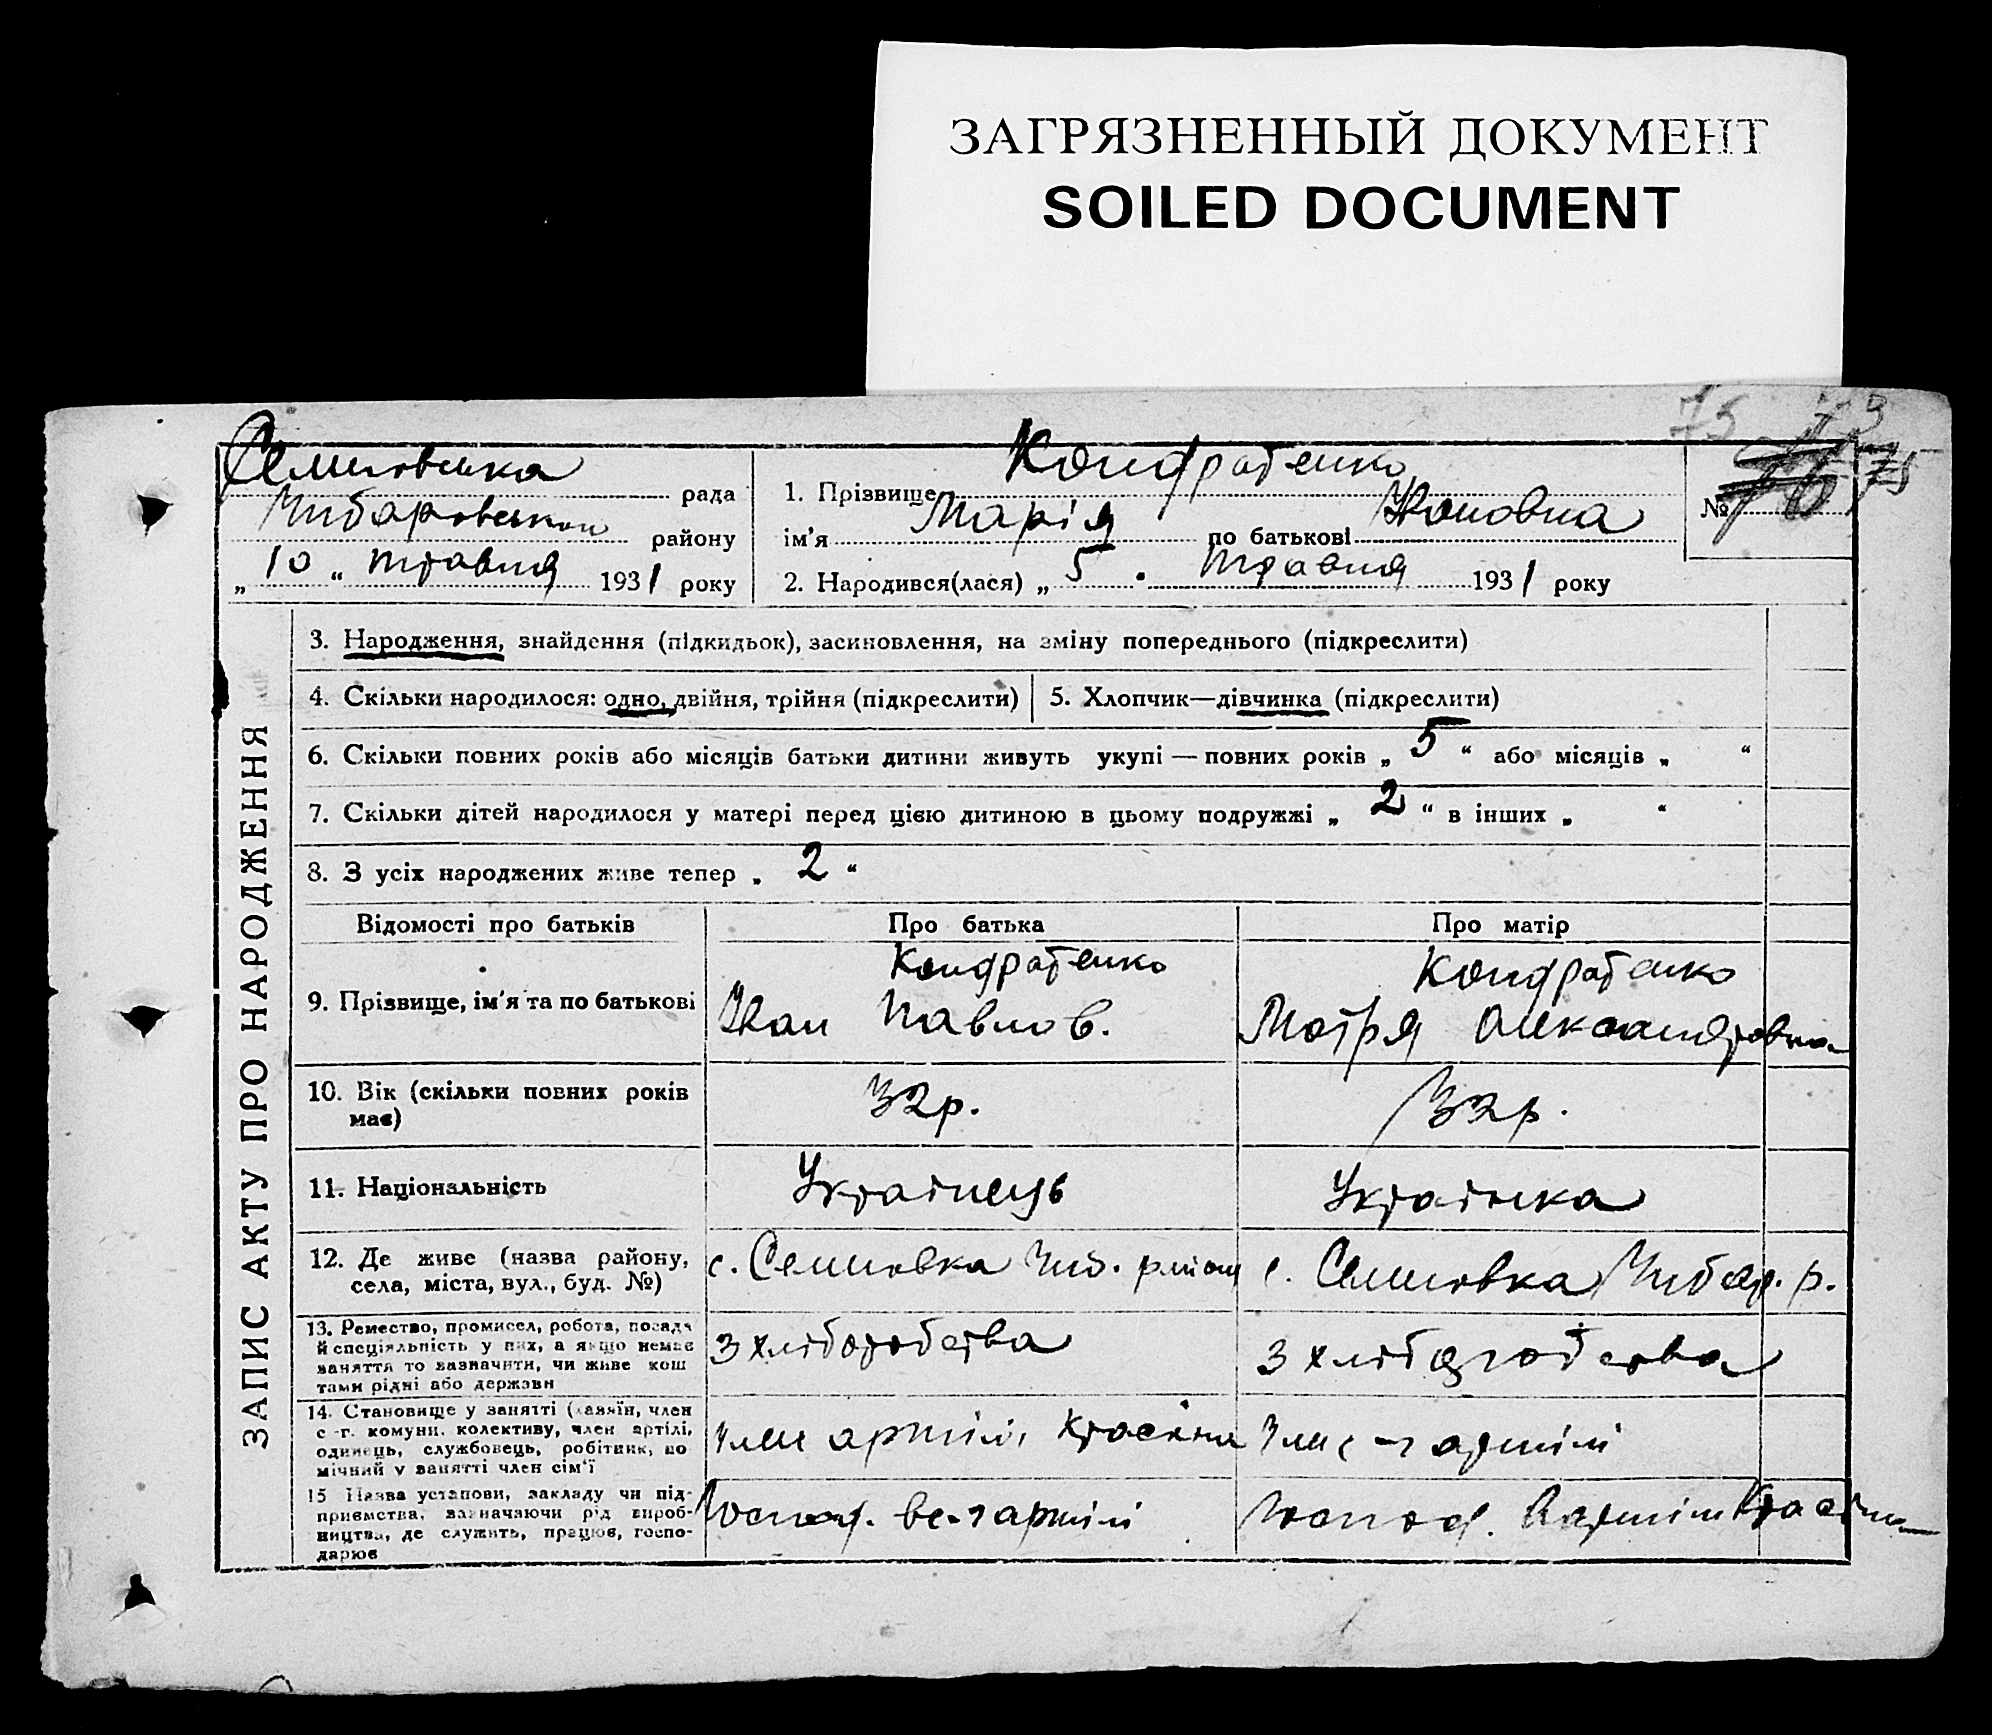 ЗАГРЯЗНЕННЫЙ ДОКУМЕНТ
SOILED DOCUMENT
75 73
Семиовська рада
Чубаровськ району
„ 10 “ травня 1931 року
1. Прізвище Кондратенко
ім'я Марія по батькові Івановна
2. Народився(лася) „ 5 “ травня 1931 року
№ 76 75
ЗАПИС АКТУ ПРО НАРОДЖЕННЯ
3. Народження, знайдення (підкидьок), засиновлення, на зміну попереднього (підкреслити)
4. Скільки народилося: одно, двійня, трійня (підкреслити)
5. Хлопчик—дівчинка (підкреслити)
6. Скільки повних років або місяців батьки дитини живуть укупі — повних років „ 5 “ або місяців „ “
7. Скільки дітей народилося у матері перед цією дитиною в цьому подружжі „ 2 “ в інших „ “
8. З усіх народжених живе тепер „ 2 “
Відомості про батьків
Про батька
Про матір
9. Прізвище, ім'я та по батькові
Кондратенко
Іван Павлов.
Кондратенко
Мотря Александровна
10. Вік (скільки повних років
має)
32р.
32р.
11. Національність
Українець
Українка
12. Де живе (назва району,
села, міста, вул., буд. №)
с. Семиовка Чуб. району
с. Семиовка Чубар. р.
13. Ремество, промисел, робота, посада
й спеціяльність у них, а якщо немає
заняття то зазначити, чи живе кош
тами рідні або держави
З хліборобства
З хліборобства
14. Становище у занятті (хазяїн, член
с.-г. комуни, колективу, член артілі,
одинець, службовець, робітник, по
мічний у занятті член сім'ї
Член артілі
Член артілі
15 Назва установи, закладу чи під-
приємства, зазначаючи рід вироб-
ництва, де служить, працює, госпо-
дарює
Господ. артілі
Господ. В артілі